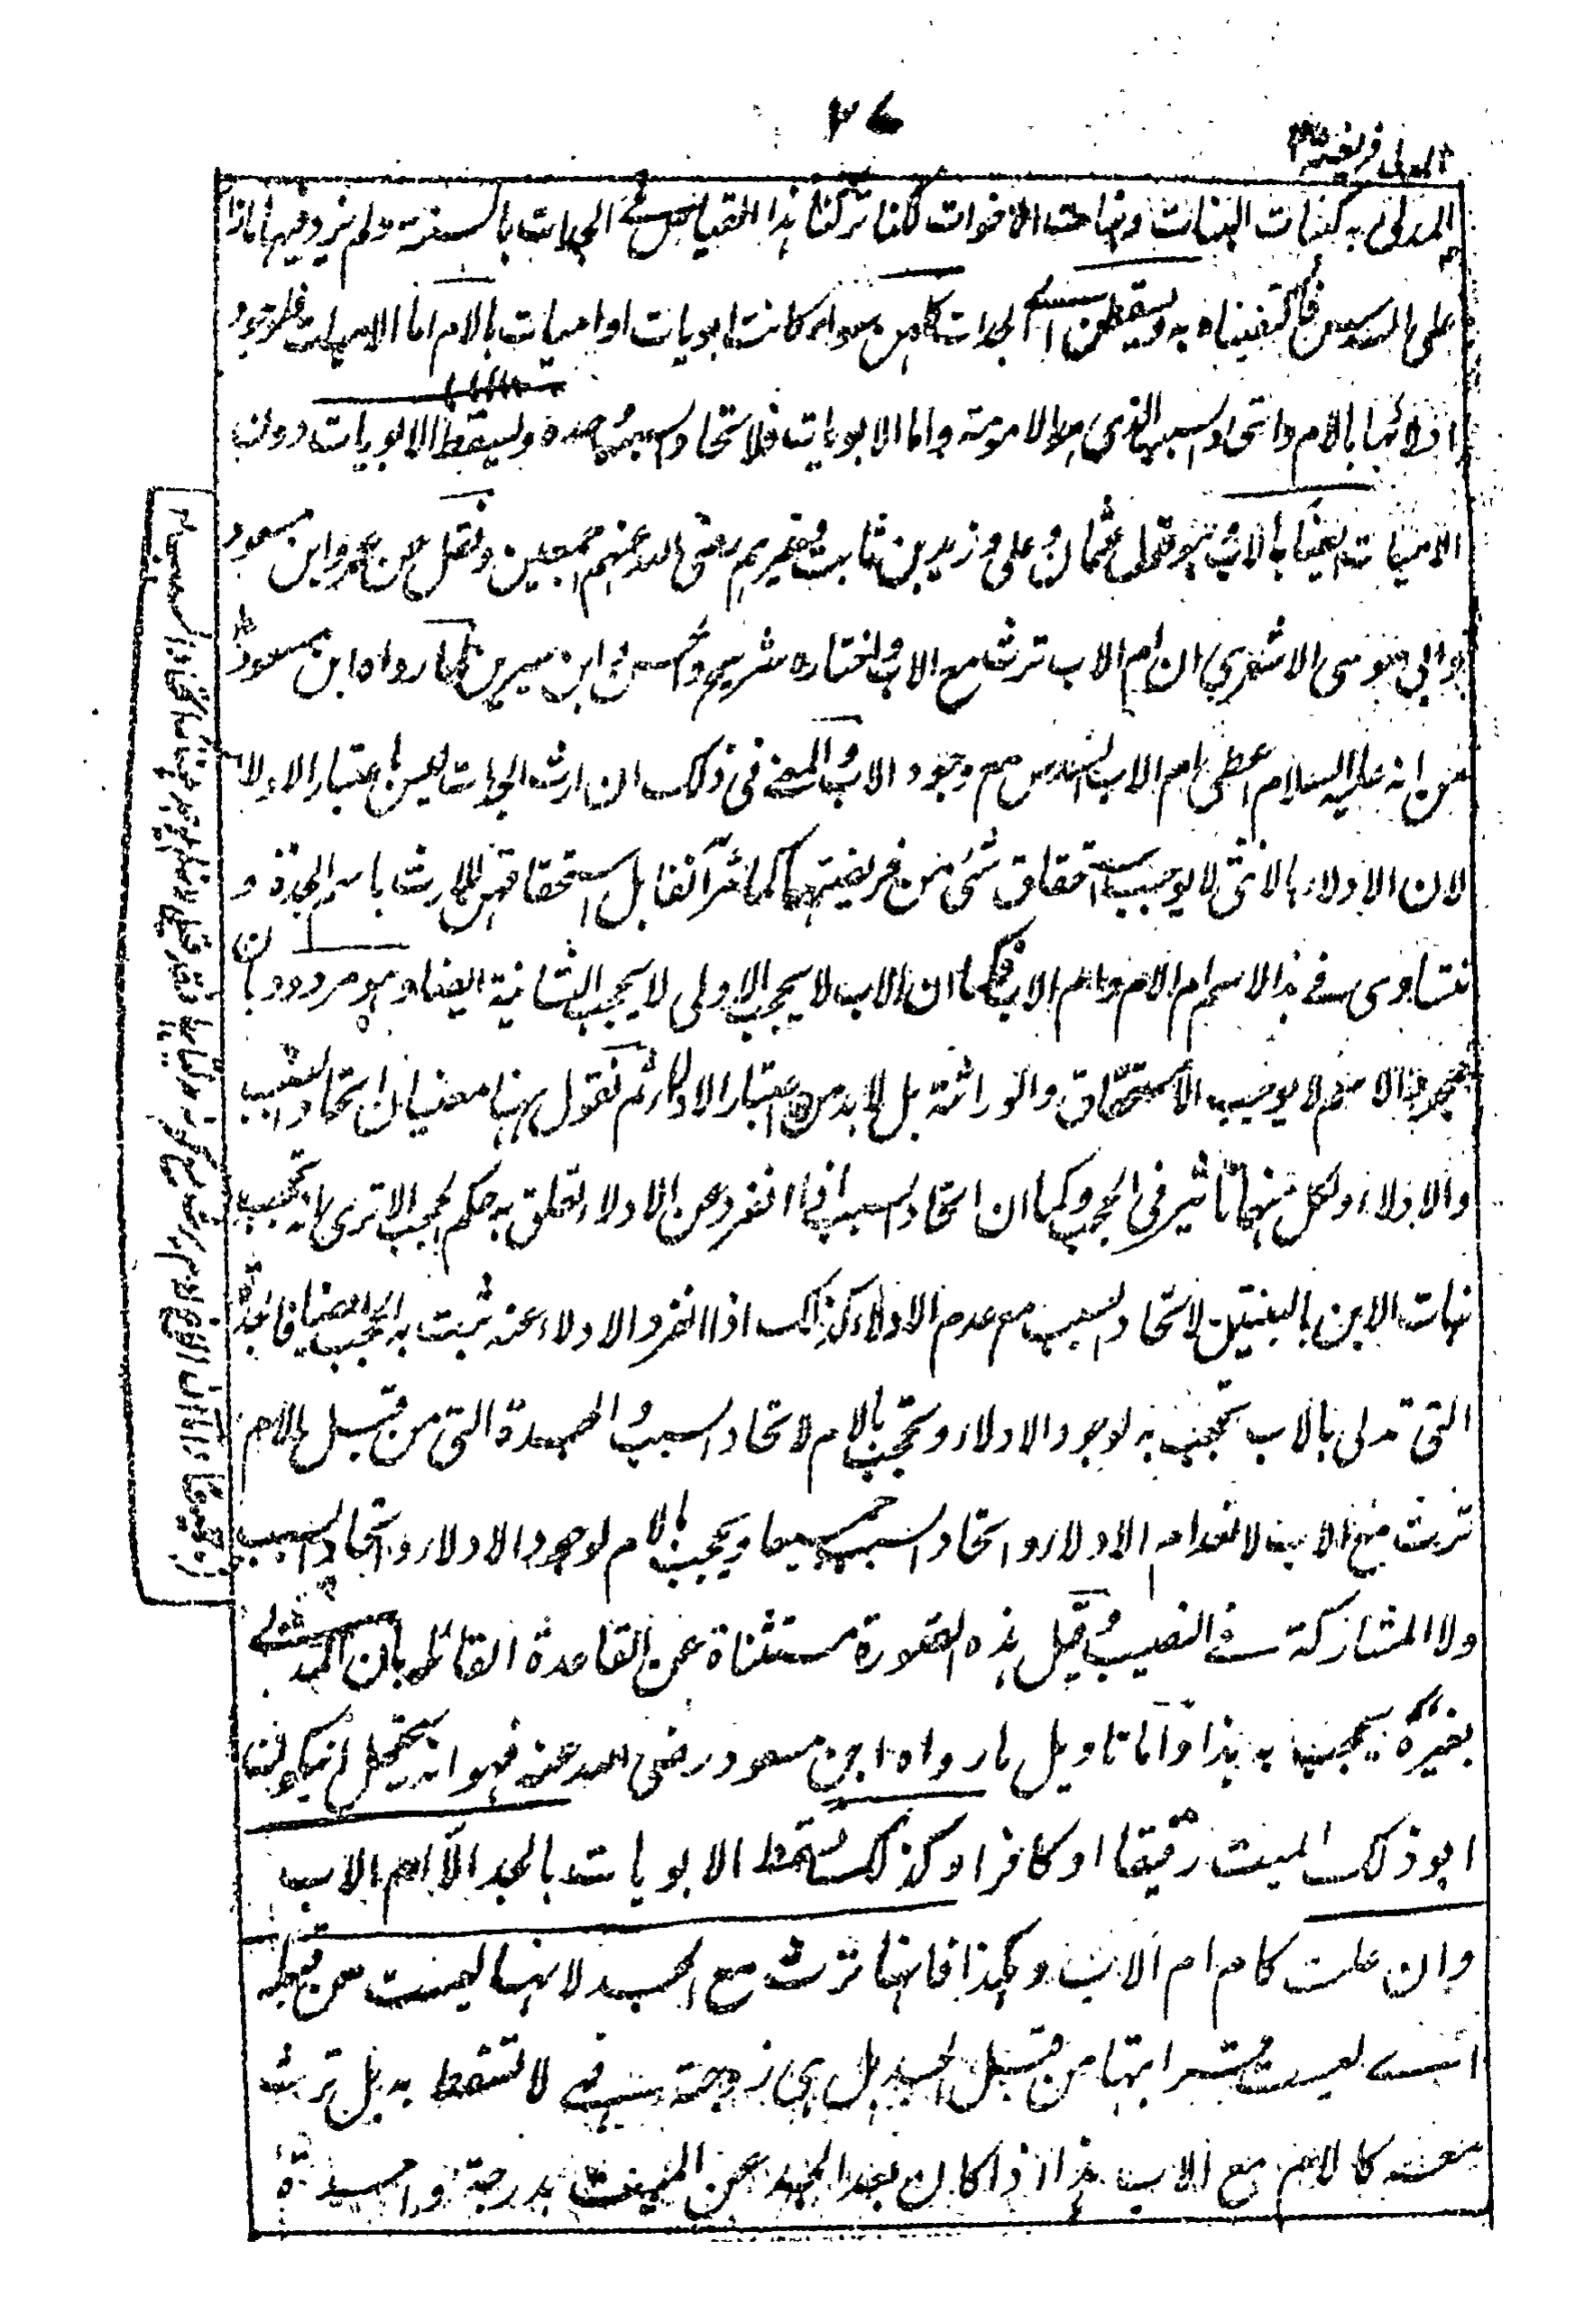 ٢٦
المدلى فريضة
المدلى به كبنات البنات وبنات الاخوات لكنا تركنا هذا القياس فى الجدات بالسنة ولم نزد فيها
على السدس فاكتفيناه به ويسقطن اى الجدات كلهن سواء كانت ابويات او اميات بالام اما الاميات فلوجود
ادلائها بالام واتحاد سببها الذى هو الامومة واما الابويات فلاتحاد السبب وحده ويسقط الابويات دون
الاميات ايضا بالاب وهو قول عثمان وعلى وزيد بن ثابت وغيرهم رضى الله عنهم اجمعين ونقل عن عمر وابن مسعود
وابى موسى الاشعري ان ام الاب ترث مع الاب واختاره شريح والحسن وابن سيرين لما رواه ابن مسعود
من انه عليه السلام اعطى ام الاب السدس مع وجود الاب والمعنى فى ذلك ان ارث الجدات ليس باعتبار الادلاء
لان الادلاء بالانثى لا يوجب استحقاق شئ من فريضتها كما مر آنفا بل استحقاقهن للارث باسم الجدة و
تتساوى فى هذا الاسم ام الام وام الاب فكما ان الاب لا يحجب الاولى لا يحجب الثانية ايضا وهو مردود بان
مجرد الاسم لا يوجب الاستحقاق والوراثة بل لا بد من اعتبار الادلاء ثم نقول ههنا معنيان اتحاد السبب
والادلاء ولكل منهما تاثير فى الحجب وكما ان اتحاد السبب اذا انفرد عن الادلاء تعلق به حكم الحجب الا ترى انه تحجب
بنات الابن بالبنتين لاتحاد السبب مع عدم الادلاء كذلك اذا انفرد الادلاء عنه ثبت به الحجب ايضا فالجدة
التى تدلى بالاب تحجب به لوجود الادلاء وتحجب بالام لاتحاد السبب والجدة التى من قبل الام
ترث مع الاب لانعدام الادلاء واتحاد السبب جميعا ويحجب بالام لوجود الادلاء واتحاد السبب
ولا المشاركة فى النصيب وقيل هذه الصورة مستثناة عن القاعدة القائلة بان المدلى
بغيره يحجب به هذا واما تاويل ما رواه ابن مسعود رضى الله عنه فهو انه يحتمل ان يكون
ابو ذلك الميت رقيقا او كافرا وكذلك تسقط الابويات بالجد الا ام الاب
وان علت كام ام الاب وهكذا فانها ترث مع الجد لانها ليست من قبله
اى ليست قرابتها من قبل الجد بل هى زوجته فهى لا تسقط به بل ترث
معه كالام مع الاب هذا اذا كان بعد الجد عن الميت بدرجة واحدة